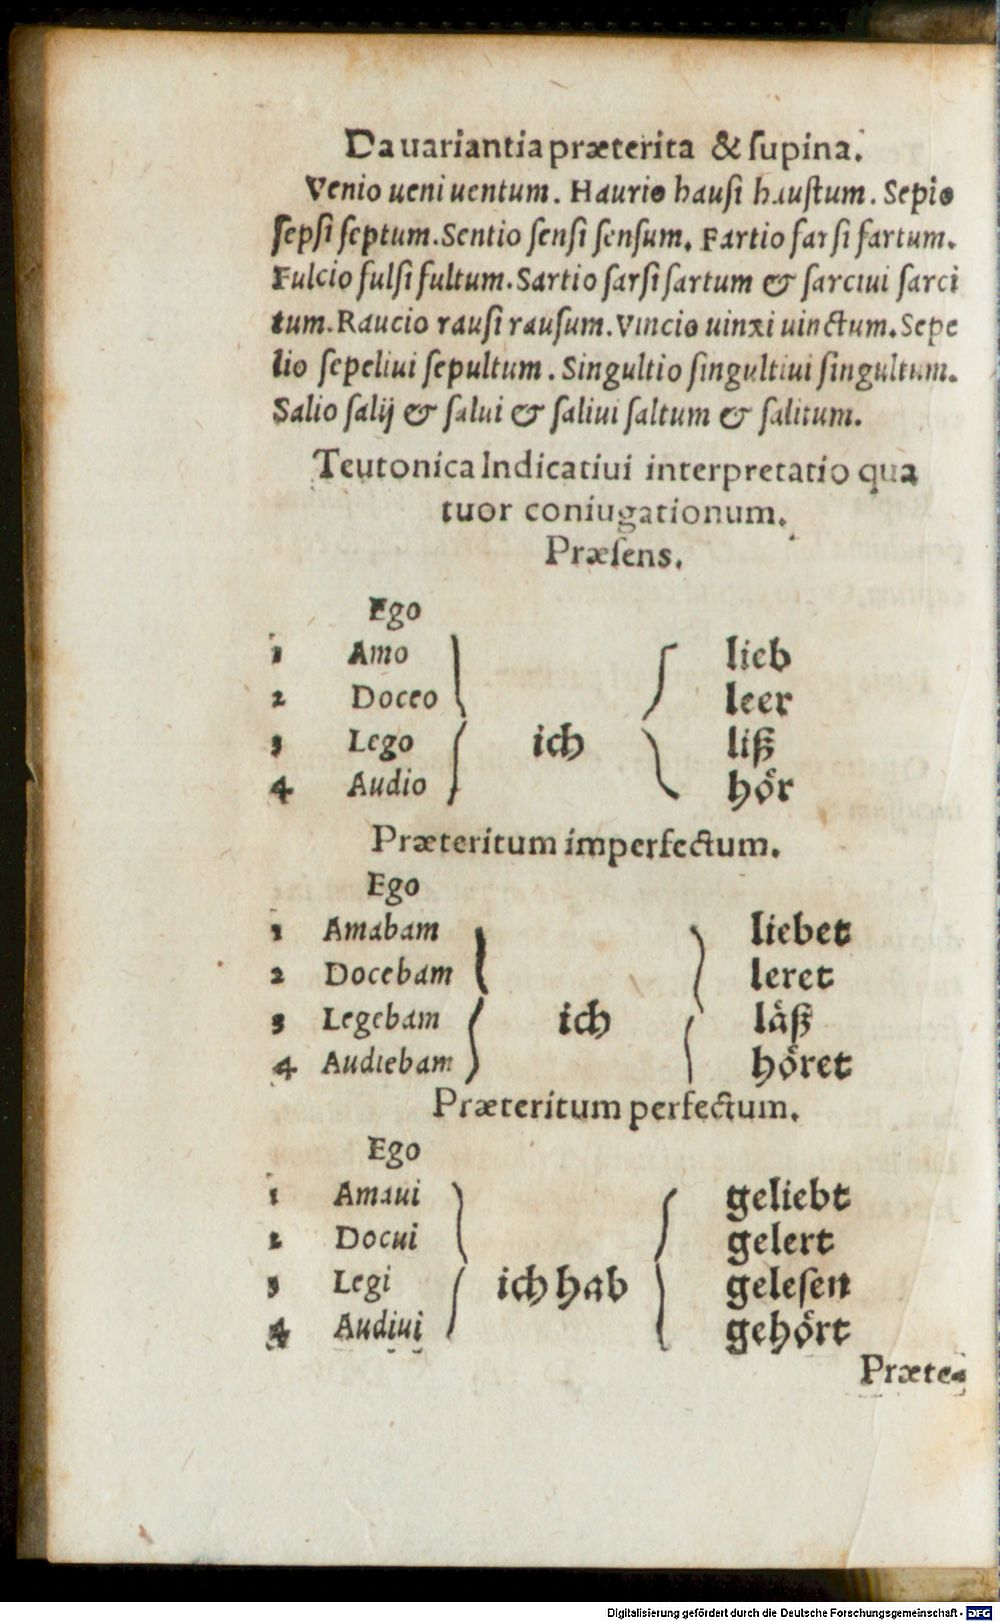 Da uariantia præterita & ſupina.
Venio ueni uentum. Haurio hauſi hauſtum. Sepio
ſepſi ſeptum. Sentio ſenſi ſenſum. Fartio farſi fartum.
Fulcio fulſi fultum. Sartio ſarſi ſartum & ſarciui ſarci
tum. Raucio rauſi rauſum. Vincio uinxi uinctum. Sepe
lio ſepeliui ſepultum. Singultio ſingultiui ſingultum.
Salio ſalij & ſalui & ſaliui ſaltum & ſalitum.
Teutonica Indicatiui interpretatio qua
tuor coniugationum.
Præſens.
Ego
1 Amo lieb
2 Doceo leer
3 Lego ich liß
4 Audio hoͤr
Præteritum imperfectum.
Ego
1 Amabam liebet
2 Docebam leret
3 Legebam ich laͤß
4 Audiebam hoͤret
Præteritum perfectum.
Ego
1 Amaui geliebt
2 Docui gelert
3 Legi ich hab geleſen
4 Audiui gehoͤrt
Præte-
Digitalisierung gefördert durch die Deutsche Forschungsgemeinschaft - DFG